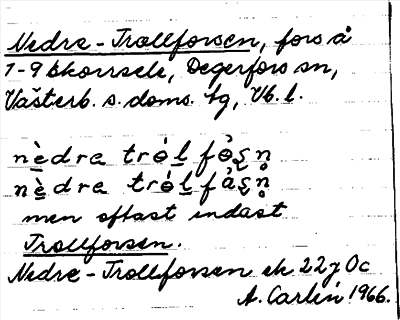 Nedre-Trollforsen, fors å
1-9 Skorrsele, Degerfors sn,
Västerb. s. doms. tg, Vb. l.
nèdra tròl fòṣn̥
nèdra tròl fàṣn̥
men oftast endast
Trollforsen.
Nedre-Trollforsen ek 22 j Oc
A. Carlin 1966.